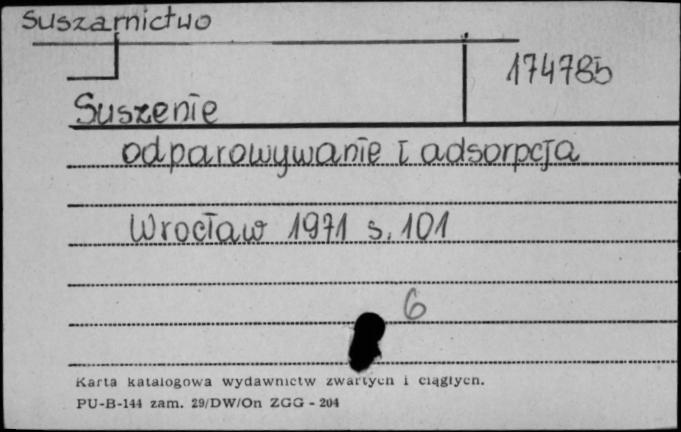 Suszarnictwo
174785
Suszenie
odparowywanie i adsorpcja
Wrocław 1971 s. 101
6
Karta katalogowa wydawnictw zwartych i ciągłych.
PU-B-144 zam. 29/DW/On ZGG - 204